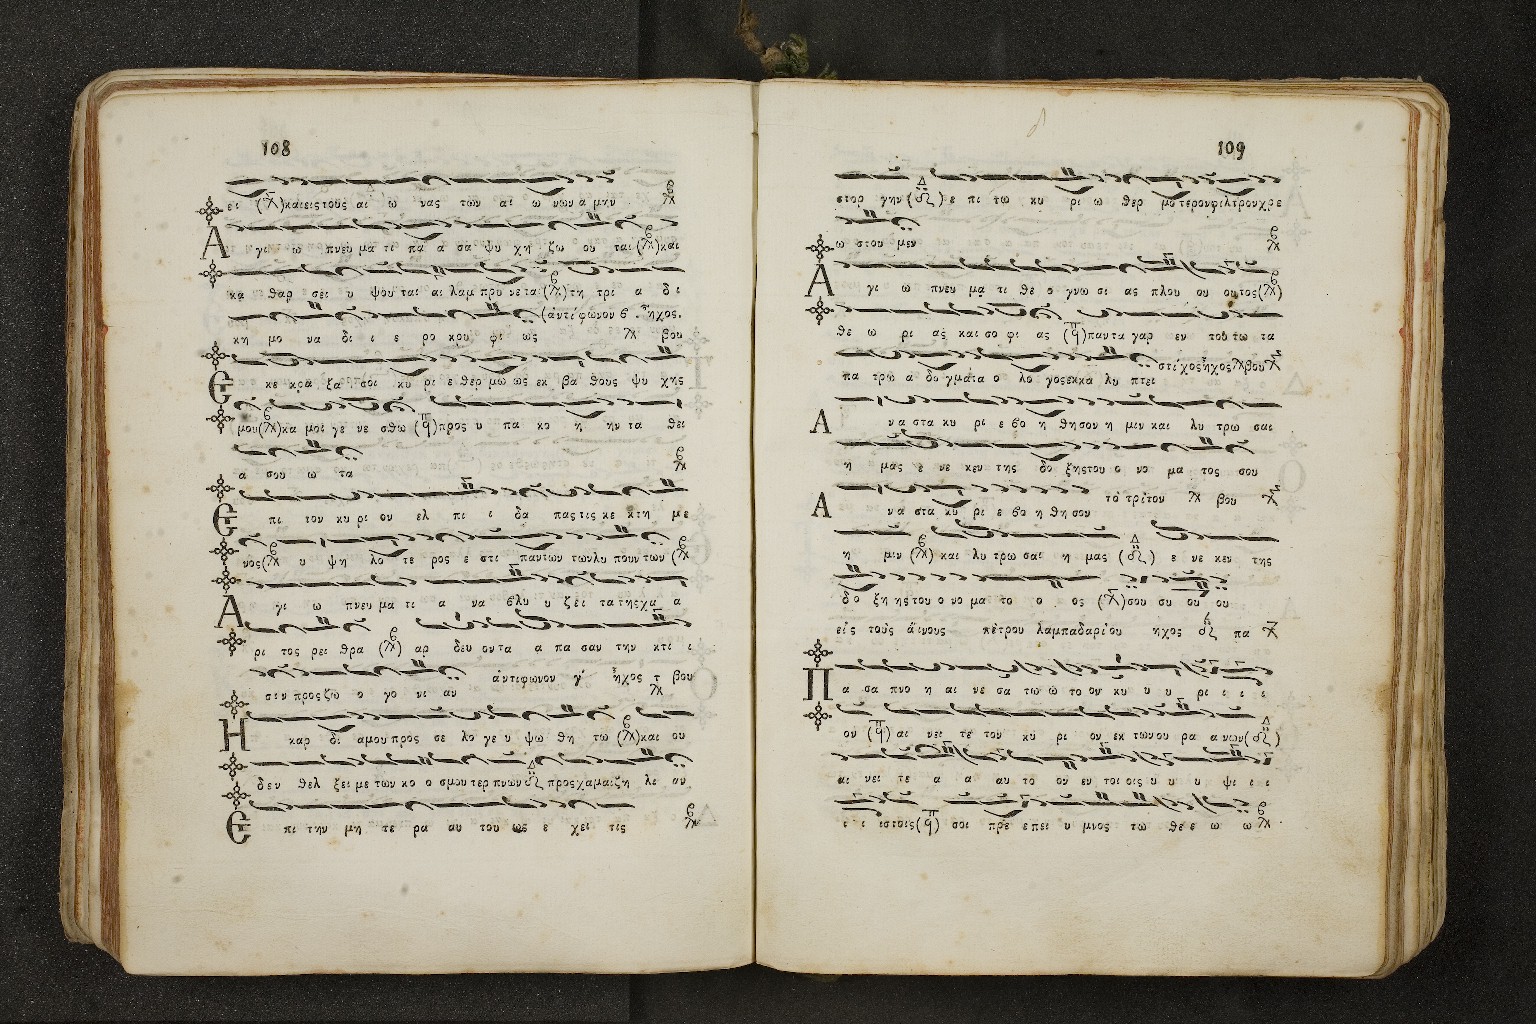 108
ει και εις τους αι ω νας των αι ω νων α μην
Α γι ω πνευ μα τι πα α σα ψυ χη ζω ου ται και
κα θαρ σει υ ψου ται αι λαμ πρυ νε ται τη τρι α δι
αντίφωνον β. ἦχος.
κη μο να δι ι ε ρο κρυ φι ως βου
Ε κε κρα ξα σοι κυ ρι ε θερ μω ως εκ βα θους ψυ χης
μου κα μοι γε νε σθω προς υ πα κο η ην τα θει
α σου ω τα
Ε πι τον κυ ρι ον ελ πι ι δα πας τις κε κτη με
νος υ ψη λο τε ρος ε στι παντων των λυ πουν των
Α γι ω πνευ μα τι α να βλυ υ ζει τα της χα α
ρι τος ρει θρα αρ δευ οντα α πα σαν την κτι ι
σιν προς ζω ο γο νι αν αντιφωνον γ' ἦχος τ βου
Η καρ δι α μου προς σε λο γε υ ψω θη τω και ου
δεν θελ ξει με των κο ο σμου τερ πνων προς χαμαιζη λι αν
Ε πι την μη τε ρα αυ του ως ε χει τις
109
στορ γην ε πι τω κυ ρι ω θερ μο τερον φιλτρον χρε
ω στου μεν
Α γι ω πνευ μα τι θε ο γνω σι ας πλου ου ου τος
θε ω ρι ας και σο φι ας παντα γαρ εν του τω τα
πα τρω α δο γματα ο λο γος εκκα λυ πτει στίχος ἦχος βου
Α να στα κυ ρι ε βο η θησον η μιν και λυ τρω σαι
η μας ε νε κεν της δο ξης του ο νο μα τος σου
τὸ τρίτον βου
Α να στα κυ ρι ε βο η θη σον
η μιν και λυ τρω σαι η μας ε νε κεν της
δο ξη ης του ο νο μα το ο ος σου συ ου ου
εἰς τοὺς αἴνους πέτρου λαμπαδαρίου ηχος πα
Π α σα πνο η αι νε σα τω ω το ον κυ υ υ ρι ι ι ι
ον αι νει τε τον κυ ρι ον εκ των ου ρα α νων
αι νει τε α α αυ το ον εν τοι οις υ υ υ ψι ι ι
ι ι ιστοις σοι πρε ε πει υ μνος τω θε ε ω ω